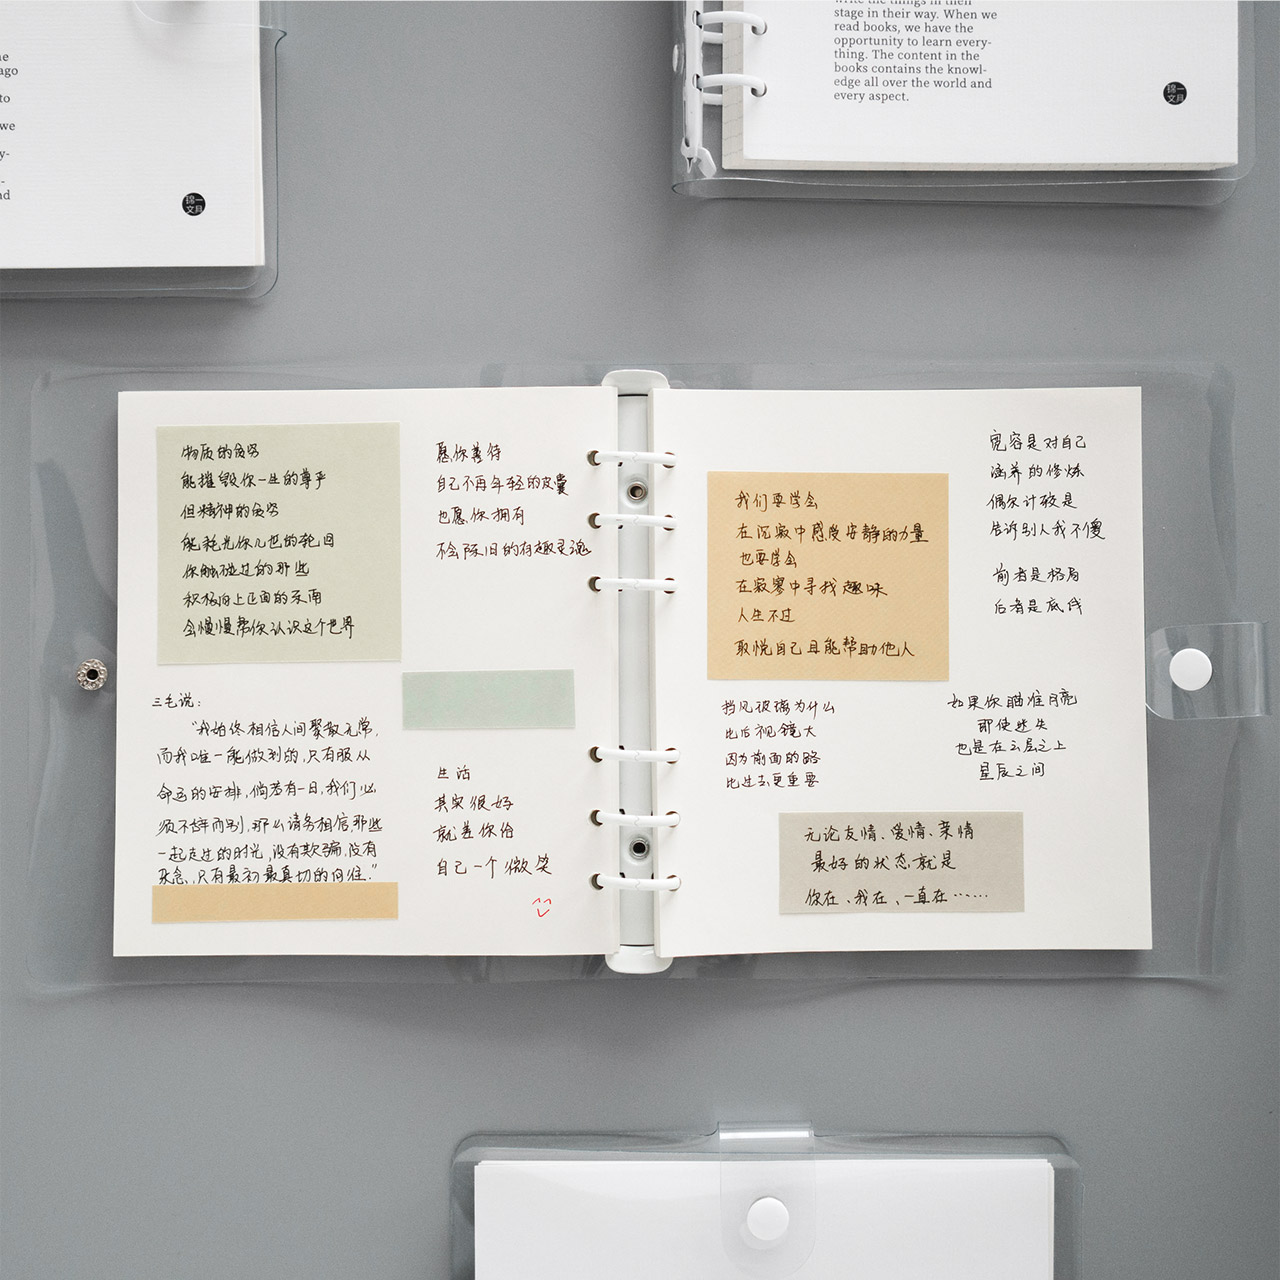 ne
ago
to
we
y-
l-
nd
锦一
文具
write the things in their
stage in their way. When we
read books, we have the
opportunity to learn every-
thing. The content in the
books contains the knowl-
edge all over the world and
every aspect.
锦一
文具
物质的贫穷
能摧毁你一生的尊严
但精神的贫穷
能耗光你几世的轮回
你触碰过的那些
积极向上正面的东西
会慢慢帮你认识这个世界
愿你善待
自己不再年轻的皮囊
也愿你拥有
不会陈旧的有趣灵魂
三毛说:
“我始终相信人间聚散无常,
而我唯一能做到的,只有服从
命运的安排,倘若有一日,我们必
须不辞而别,那么请务相信,那些
一起走过的时光,没有欺骗,没有
杂念,只有最初最真切的向往.”
生活
其实很好
就差你给
自己一个微笑
我们要学会
在沉寂中感受安静的力量
也要学会
在寂寞中寻找趣味
人生不过
取悦自己且能帮助他人
宽容是对自己
涵养的修炼
偶尔计较是
告诉别人我不傻
前者是格局
后者是底线
挡风玻璃为什么
比后视镜大
因为前面的路
比过去更重要
如果你瞄准月亮
即使迷失
也是在云层之上
星辰之间
无论友情、爱情、亲情
最好的状态就是
你在、我在、一直在······